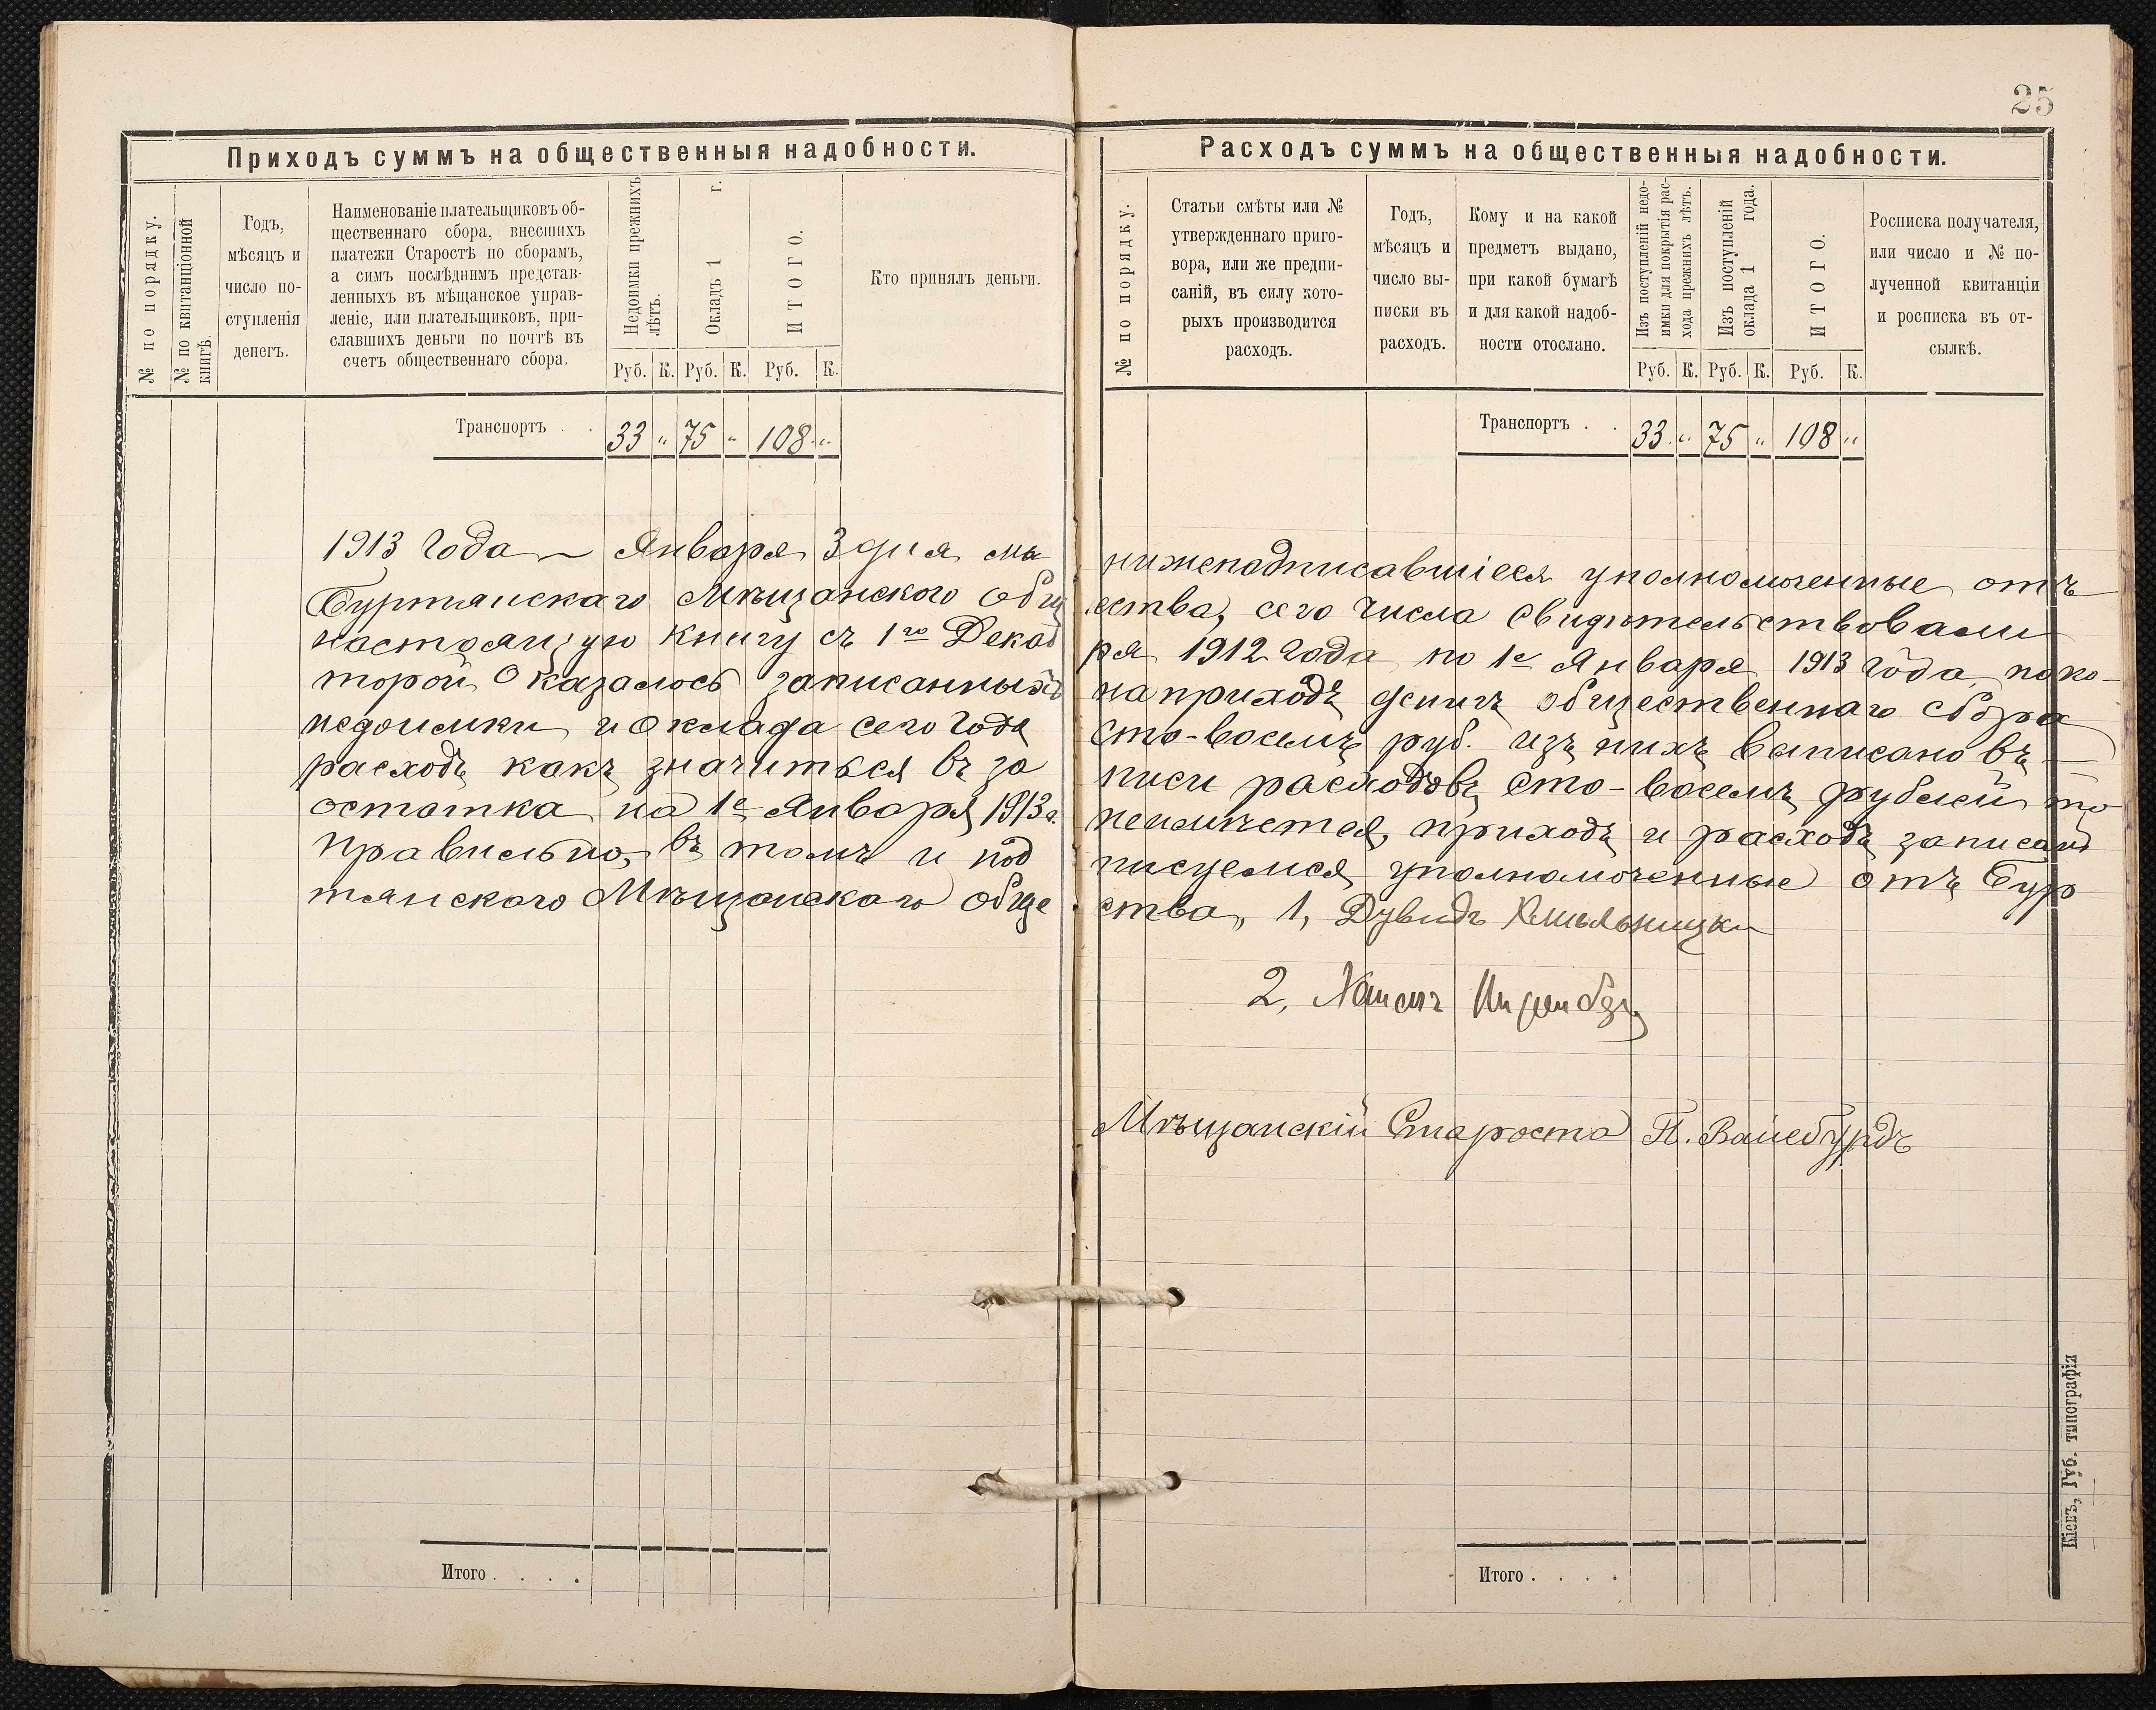 25
Приходъ суммъ на общественныя надобности.
№ по порядку.
№ по квитанціонной
книгѣ
Годъ,
мѣсяцъ и
число по-
ступленія
денегъ.
Наименованіе плательщиковъ об-
щественнаго сбора, внесшихъ
платежи Старостѣ по сборамъ,
а симъ послѣднимъ представ-
ленныхъ въ мѣщанское управ-
леніе, или плательщиковъ, при-
славшихъ деньги по почтѣ въ
счетъ общественнаго сбора.
Недоимки прежнихъ
лѣтъ.
Окладъ 1 г.
ИТОГО.
Руб. К. Руб. К. Руб. К.
Кто принялъ деньги.
Транспортъ . . 33 " 75 " 108 "
1913 года Января 3 дня мы
Буртянскаго Мѣщанского общ
настоящую книгу съ 1го Декаб
торой оказалось записанныхъ
недоимки и оклада сего года
расходъ какъ значиться въ за
остатка на 1е Января 1913 г.
правильно, въ томъ и под
тянского Мѣщанскаго обще
Итого . . . .
Расходъ суммъ на общественныя надобности.
№ по порядку.
Статьи смѣты или №
утвержденнаго приго-
вора, или же предпи-
саній, въ силу кото-
рыхъ производится
расходъ.
Годъ,
мѣсяцъ и
число вы-
писки въ
расходъ.
Кому и на какой
предметъ выдано,
при какой бумагѣ
и для какой надоб-
ности отослано.
Изъ поступленій недо-
имки для покрытія рас-
хода прежнихъ лѣтъ.
Изъ поступленій
оклада 1 года.
ИТОГО.
Руб. К. Руб. К. Руб. К.
Росписка получателя,
или число и № по-
лученной квитанціи
и росписка въ от-
сылкѣ.
Транспортъ . . 33 " 75 " 108 "
нижеподписавшіеся уполномоченные отъ
ества, сего числа свидѣтельствовали
ря 1912 года по 1е Января 1913 года, по ко-
на приходъ денигъ общественнаго сбора
сто-восемъ руб. изъ нихъ выписано въ
писи расходовъ сто-восемъ рублей то
неимѣется, приходъ и расходъ записан
писуемся уполномоченные отъ Бур
ства, 1, Дувидъ Хмѣльницки
2,
Мѣщанскій Староста П. Вайсбурдъ
Итого . . . .
Кіевъ, Губ. типографія